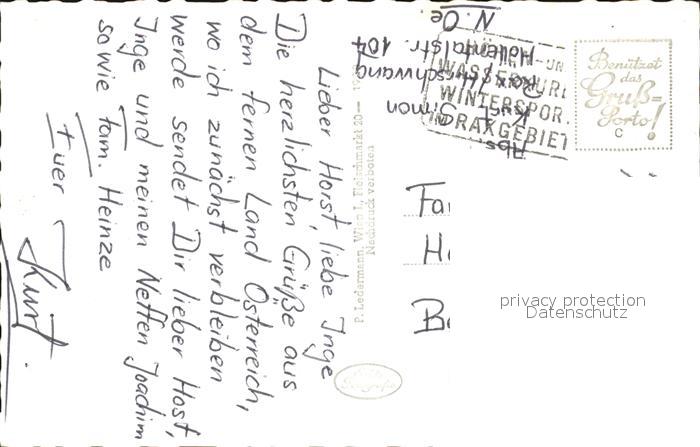 Lieber Horst, liebe Inge
Die herzlichsten Grüße aus
dem fernen Land Österreich,
wo ich zunächst verbleiben
werde sendet Dir lieber Horst,
Inge und meinen Neffen Joachim
sowie Fam. Heinze
Euer
Kurt.
Abs
Kurt Simon
Hirschwang
Höllentalstr. 104
N. Oe
WINTERSPOR
RAXGEBIET
Benützet
das
Gruß=
Porto!
C
P. Ledermann, Wien I., Fleischmarkt 20—
Nachdruck verboten
Fa
H
B
privacy protection
Datenschutz